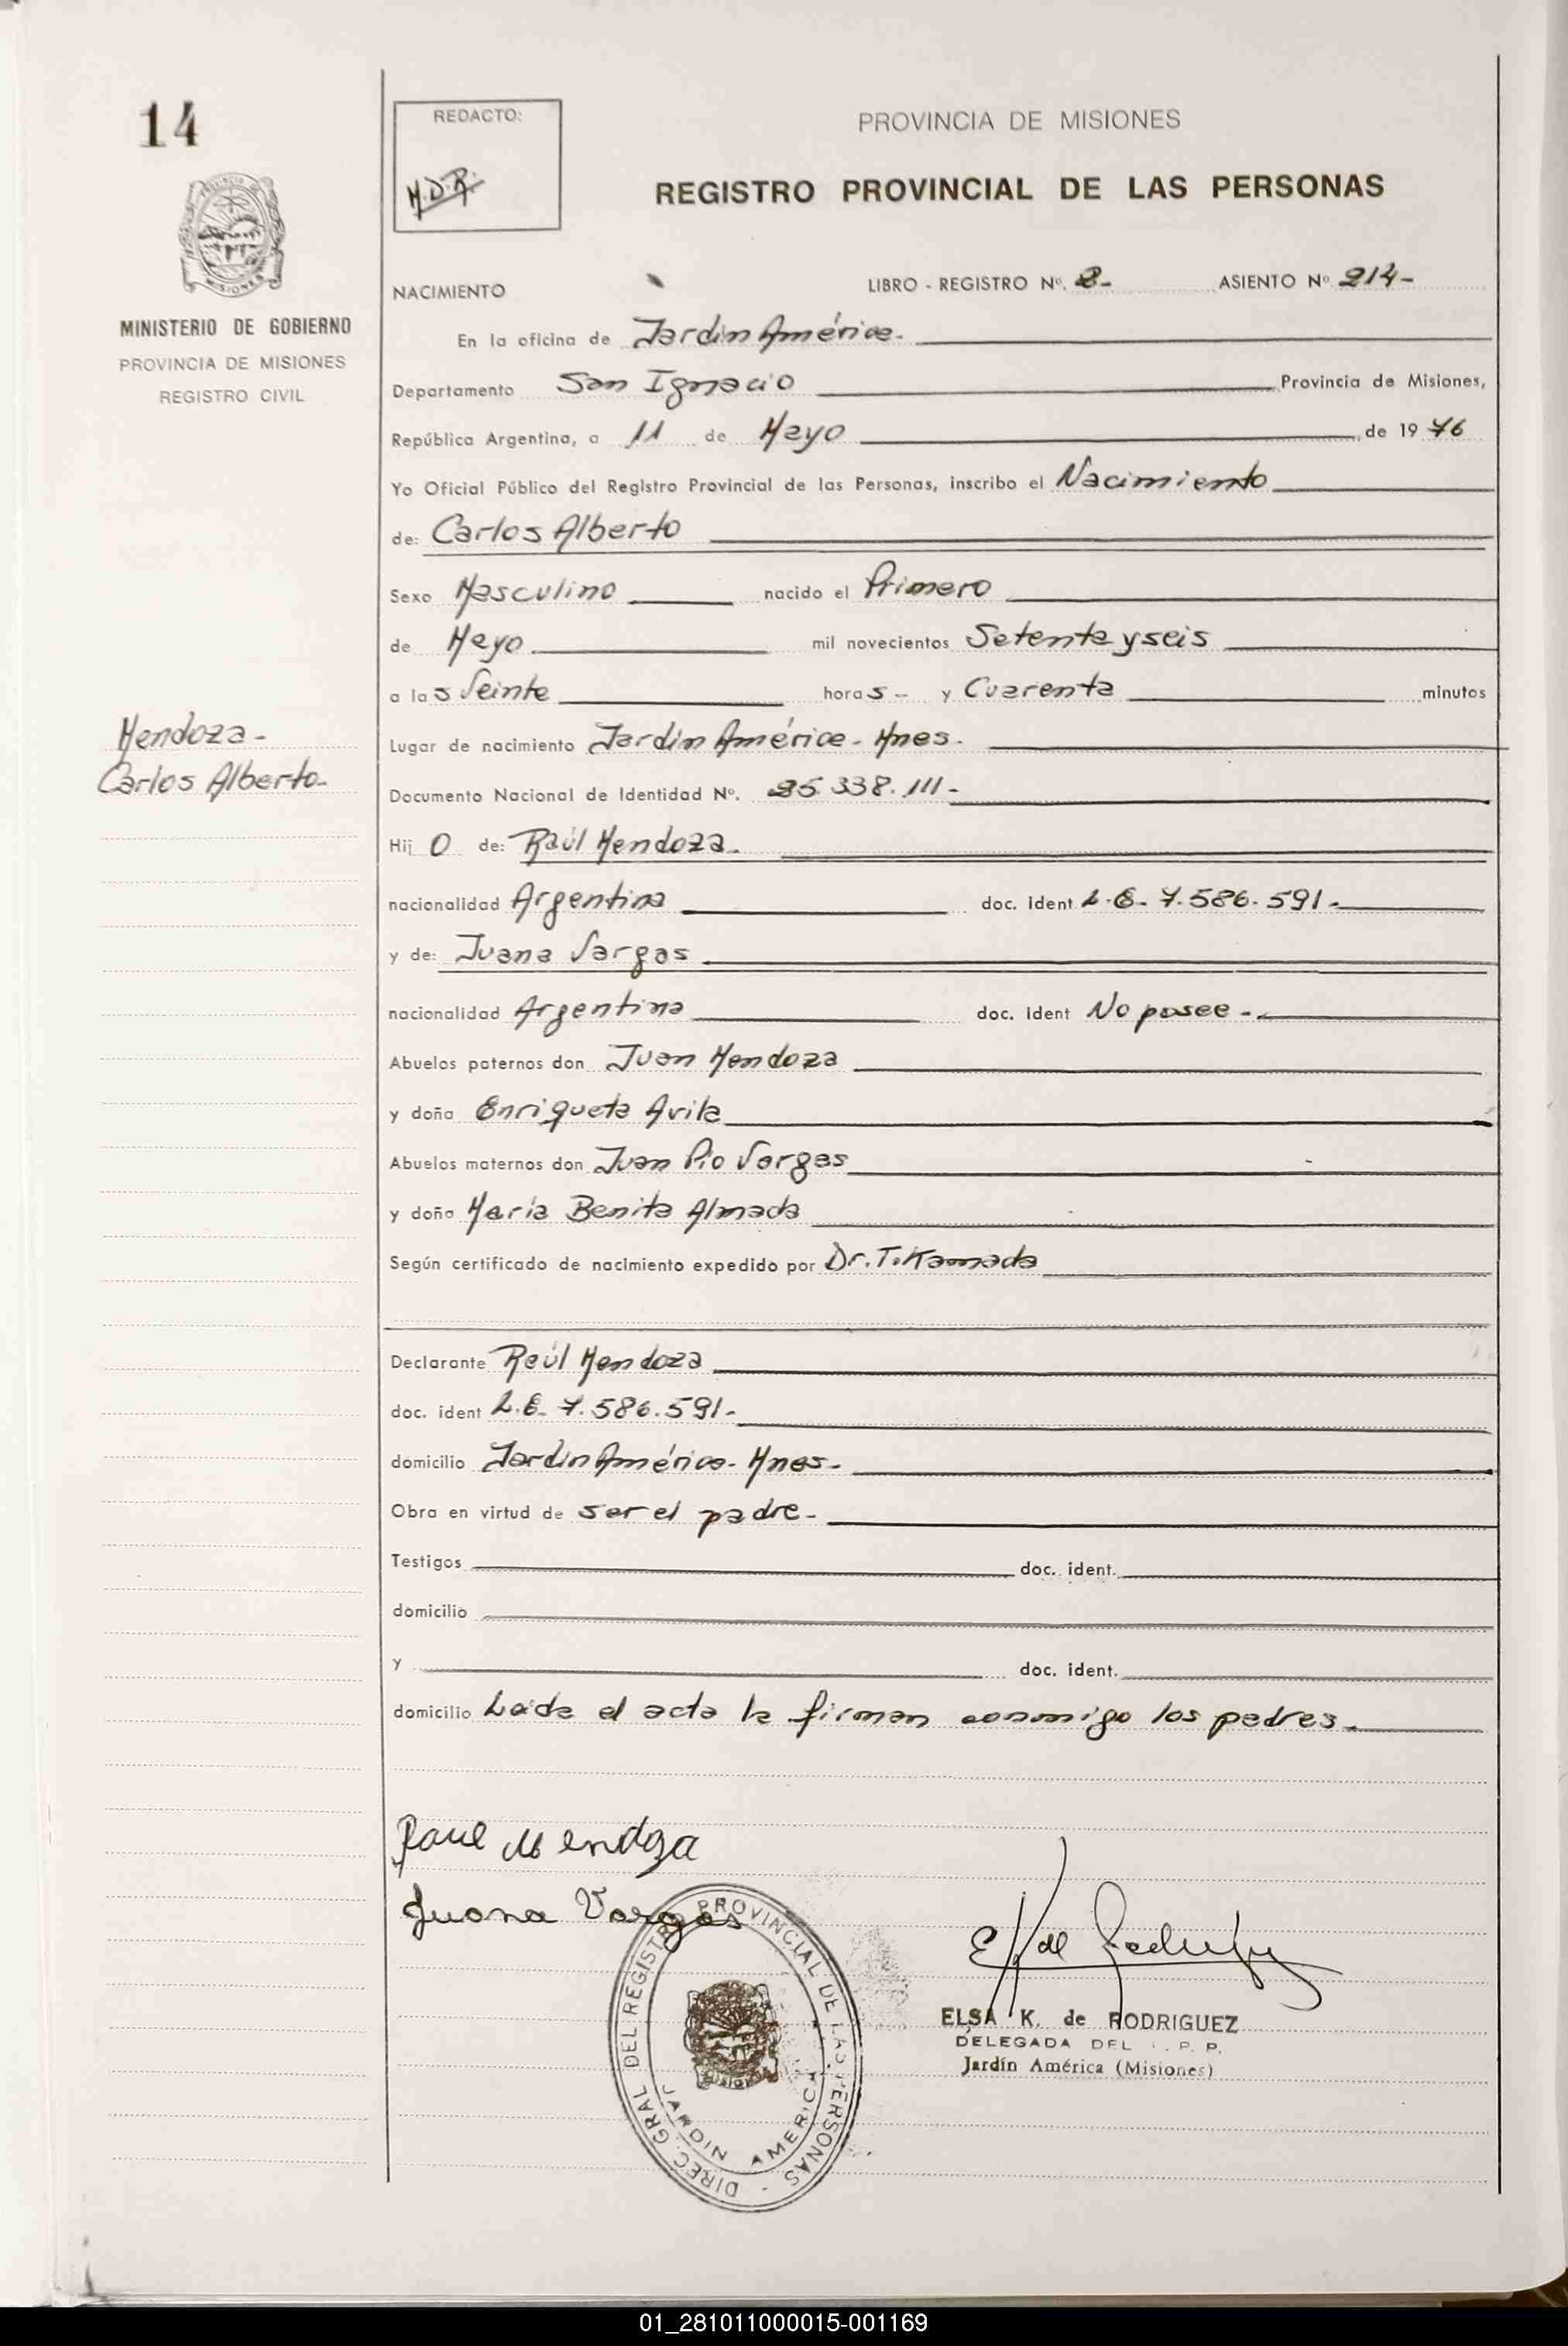 14
REDACTO:
M.D.R.
PROVINCIA DE MISIONES
REGISTRO PROVINCIAL DE LAS PERSONAS
MISIONES
MINISTERIO DE GOBIERNO
PROVINCIA DE MISIONES
REGISTRO CIVIL
NACIMIENTO LIBRO - REGISTRO Nº. 2- ASIENTO Nº 214-
En la oficina de Jardín América.
Departamento San Ignacio Provincia de Misiones,
República Argentina, a 11 de Mayo de 1976
Yo Oficial Público del Registro Provincial de las Personas, inscribo el Nacimiento
de: Carlos Alberto
Sexo Masculino nacido el Primero
de Mayo. mil novecientos Setenta y seis
a las Veinte horas - y Cuarenta minutos
Mendoza-
Carlos Alberto-
Lugar de nacimiento Jardín América - Mnes.
Documento Nacional de Identidad Nº. 25.338.111-
Hijo de: Raúl Mendoza.
nacionalidad Argentina doc. ident L.E. 7.586.591-
y de: Juana Vargas
nacionalidad Argentina doc. ident No posee -
Abuelos paternos don Juan Mendoza
y doña Enriqueta Avila
Abuelos maternos don Juan Pío Vargas
y doña María Benita Almada
Según certificado de nacimiento expedido por Dr. T. Kamada
Declarante Raúl Mendoza
doc. ident L.E. 7.586.591-
domicilio Jardín América - Mnes-
Obra en virtud de ser el padre-
Testigos doc. ident.
domicilio
y doc. ident.
domicilio Leída el acta la firman conmigo los padres-
Raul Mendoza
Juana Vargas
DIREC. GRAL DEL REGISTRO PROVINCIAL DE LAS PERSONAS -
JARDIN AMERICA
ELSA K. de RODRIGUEZ
DELEGADA DEL . P. P.
Jardín América (Misiones)
01_281011000015-001169